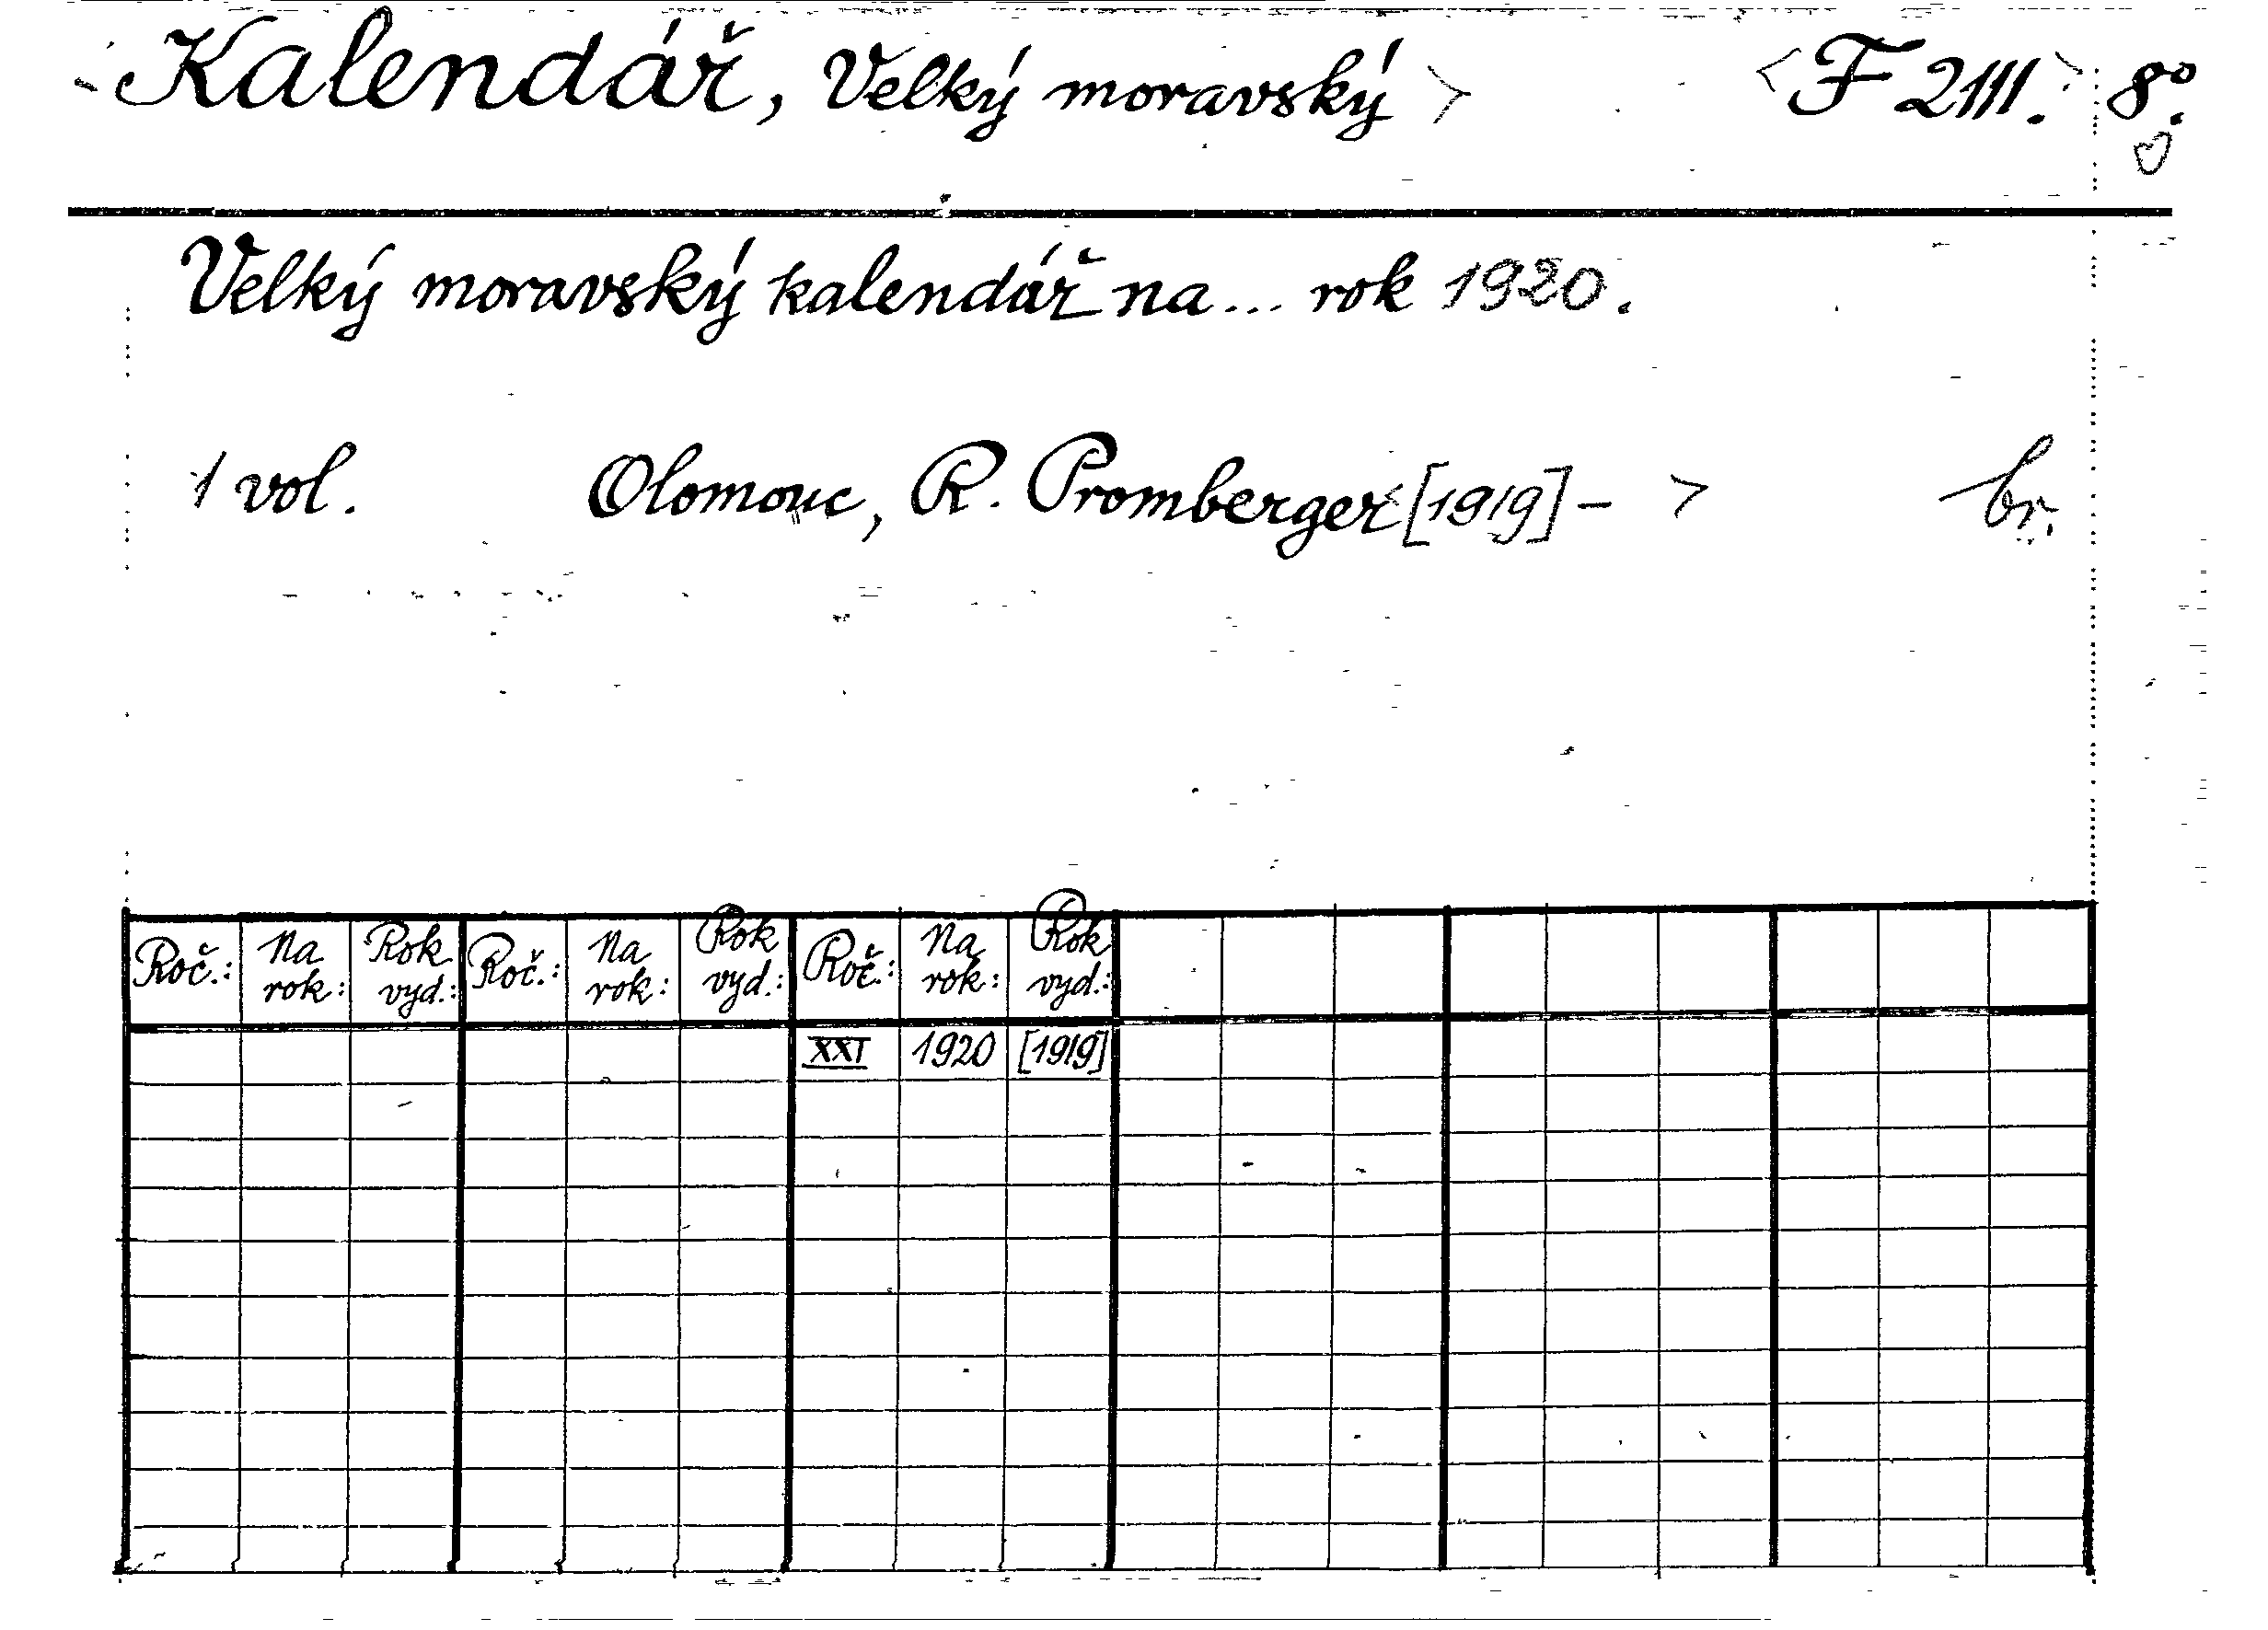 Kalendář, Velký moravský > <F 2111.> 8°.
Velký moravský kalendář na ... rok 1920.
1 vol. Olomouc, R. Promberger [1919] – > br.
Roč.: Na rok: Rok vyd.: Roč.: Na rok: Rok vyd.: Roč.: Na rok: Rok vyd.:
XXI 1920 [1919]